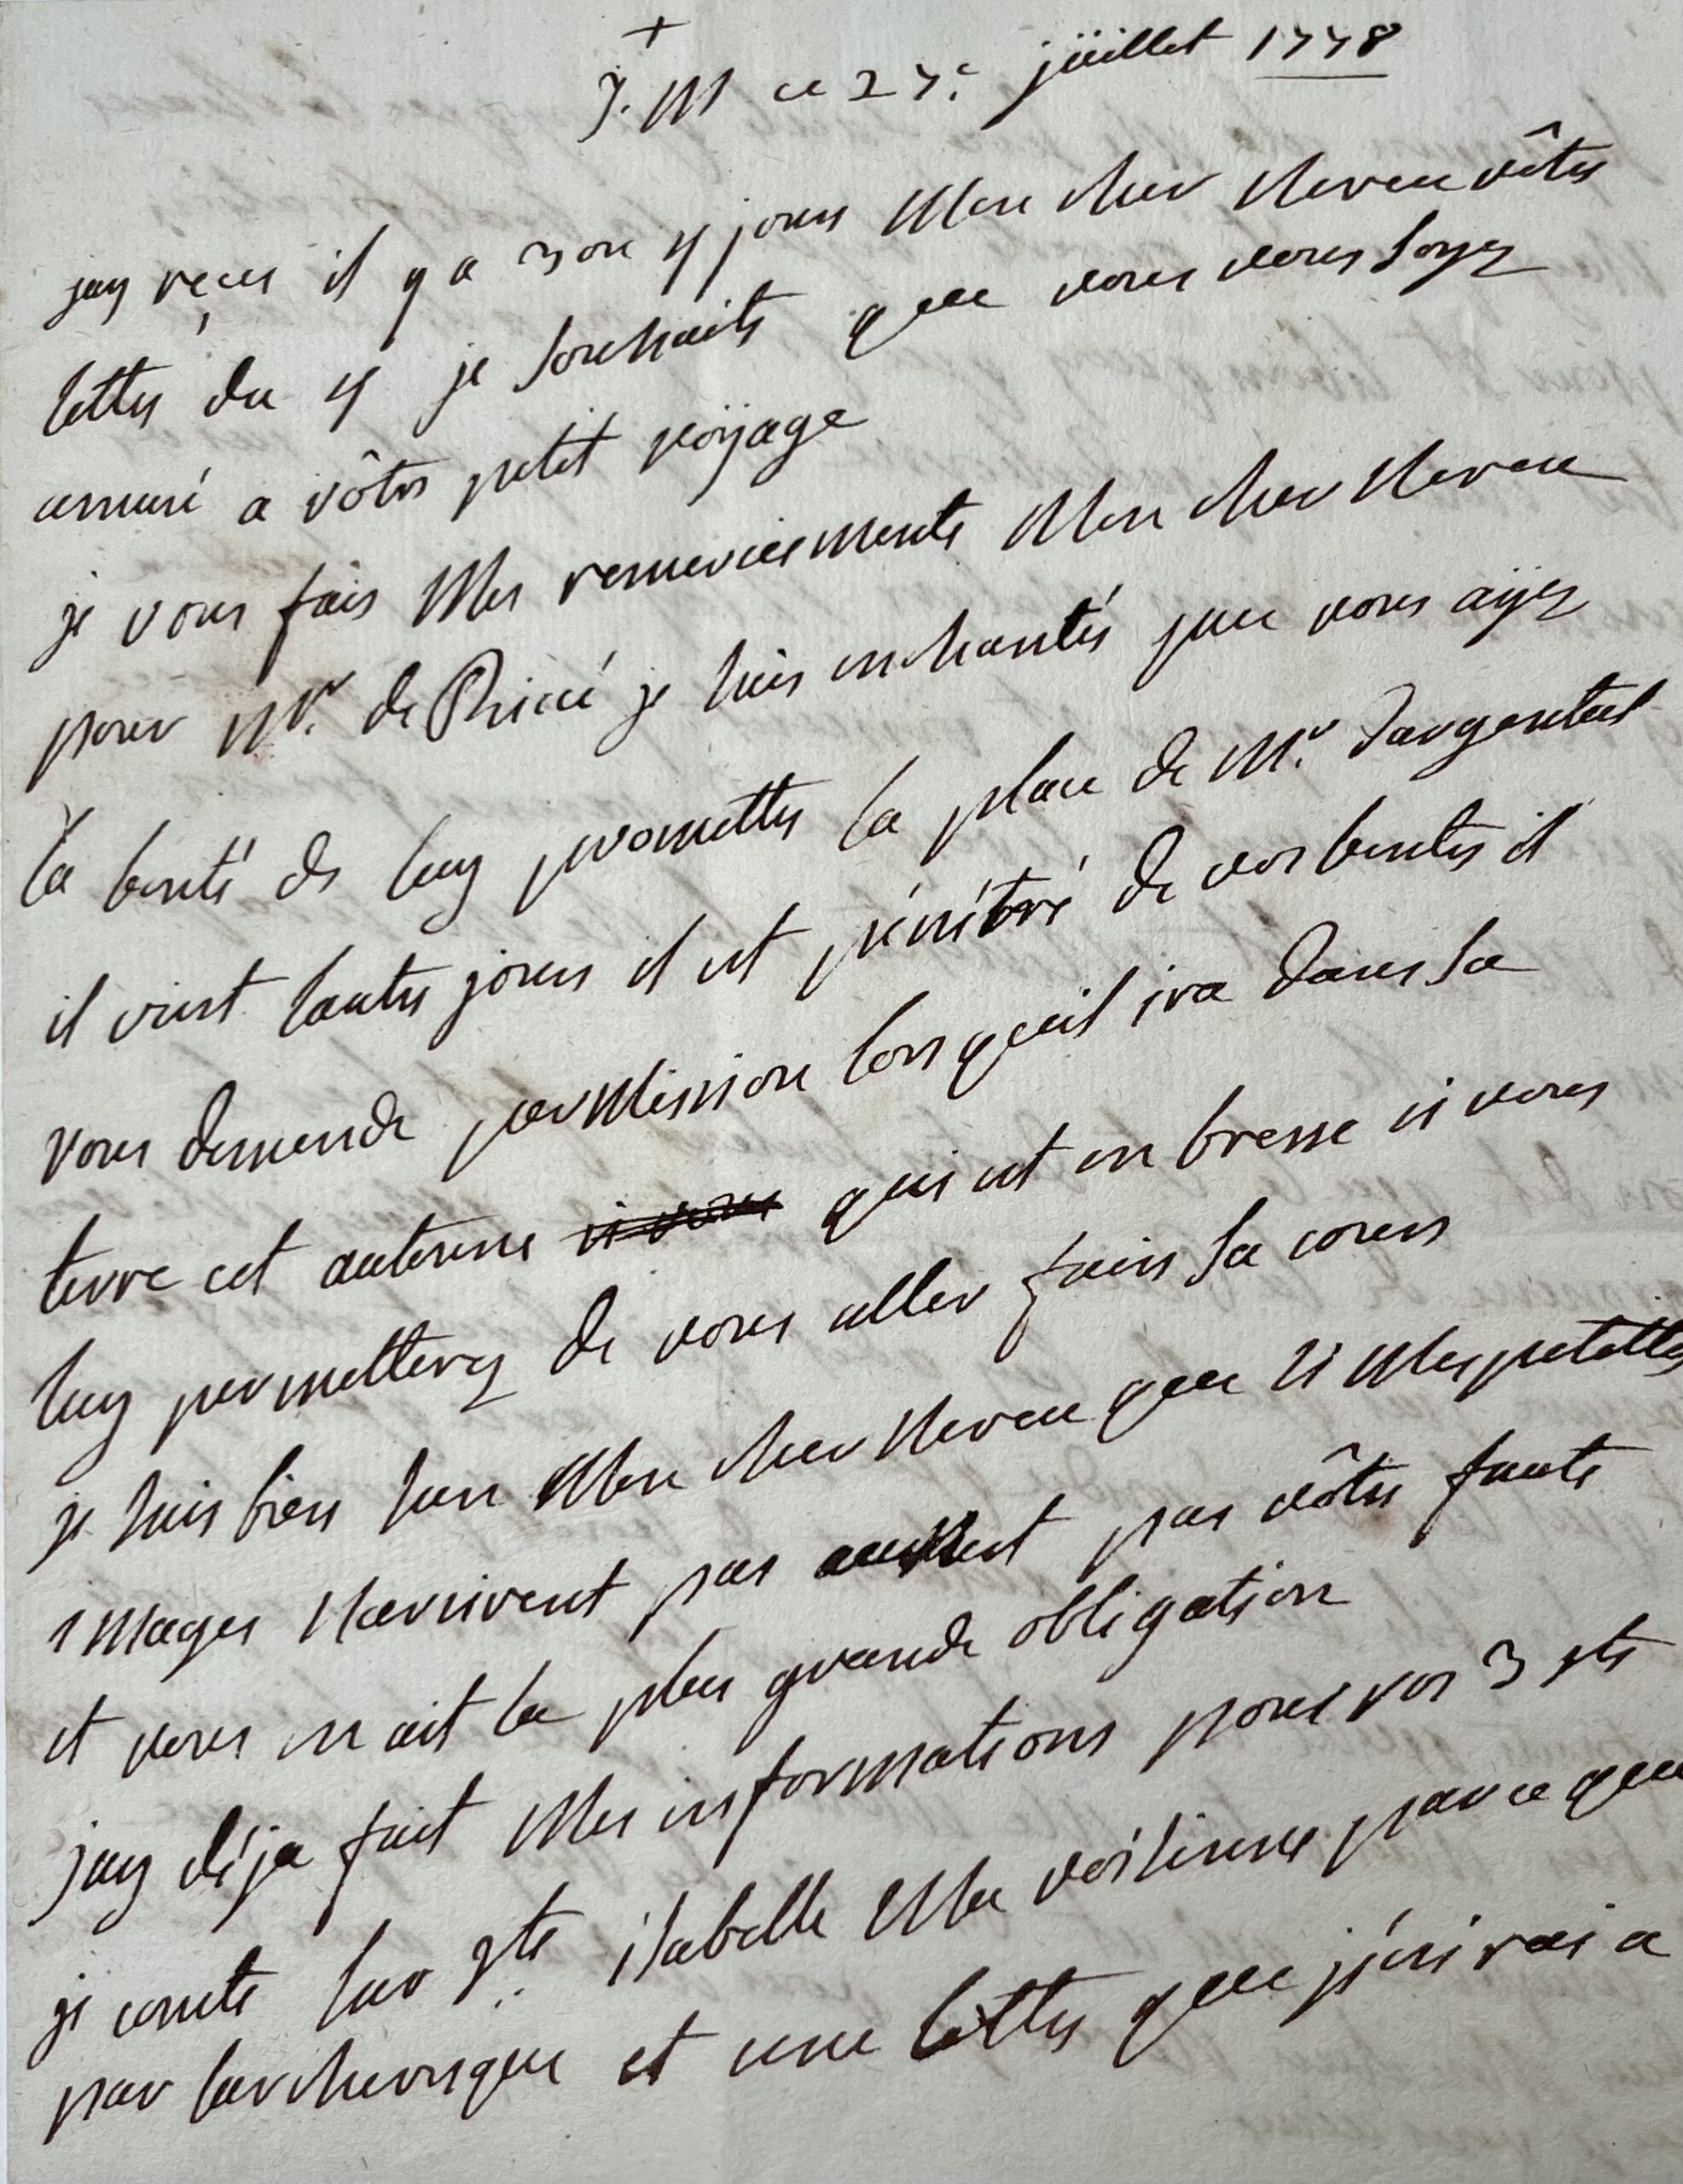 +
J. M ce 27e juillet 1778
jay reçus il y a 3 ou 4 jours Mon cher Neveu vôtre
lettre du 4 je souhaite que vous vous soyez
amusé a vôtre petit voyage
je vous fais Mes remerciements Mon cher Neveu
pour Mr. de je suis enchantés que vous ayez
la bonté de luy promettre la place de Mr. dargental
il vint lautre jours il est pénétré de vos bontés il
vous demende permission lorsquil ira dans sa
terre cet autonne si vous qui est en bresse si vous
luy permetterez de vous aller faire sa cours
je suis bien sure Mon cher Neveu que si Mes petittes
images Narrivent pas cenest pas vôtre faute
et vous en ait la plus grande obligation
jay déja fait Mes informations pour vos 3 sts
je conte sur ste isabelle Ma voisinne parce que
par larcheveque et une lettre que jécrirai a